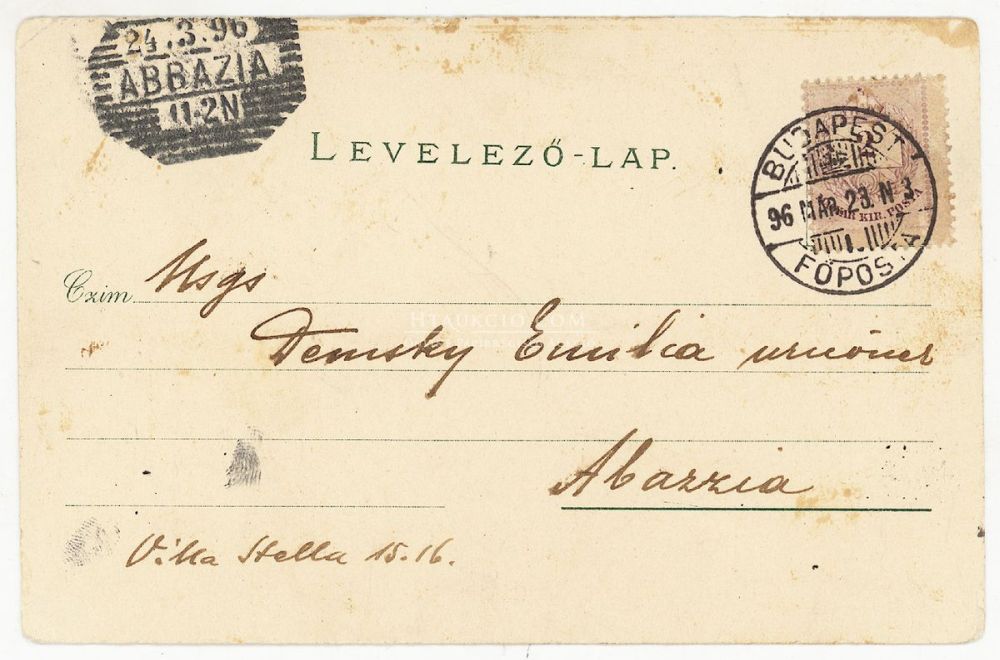 24.3.96
ABBAZIA
11-2N
LEVELEZŐ-LAP.
BUDAPEST
96 MÁR. 23. N 3
FŐPOSTA
KIR. POSTA
Czim Nsgs
HTAUKCIO.COM
Demsky Emilia urnőnek
Abazzia
Villa Stella 15.16.